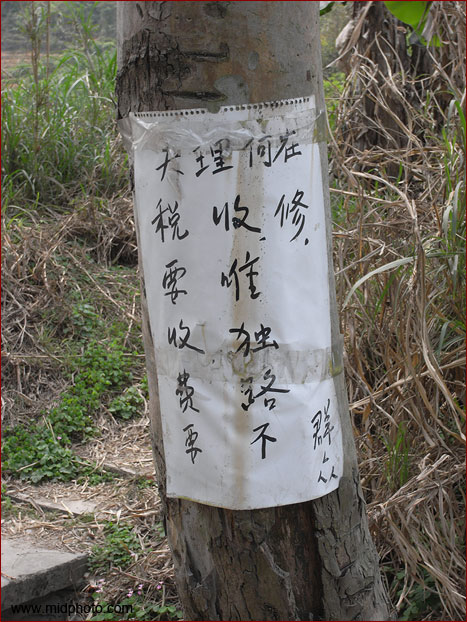 天理何在
税要收费要
收.唯独路不
修.
群众
www.midphoto.com